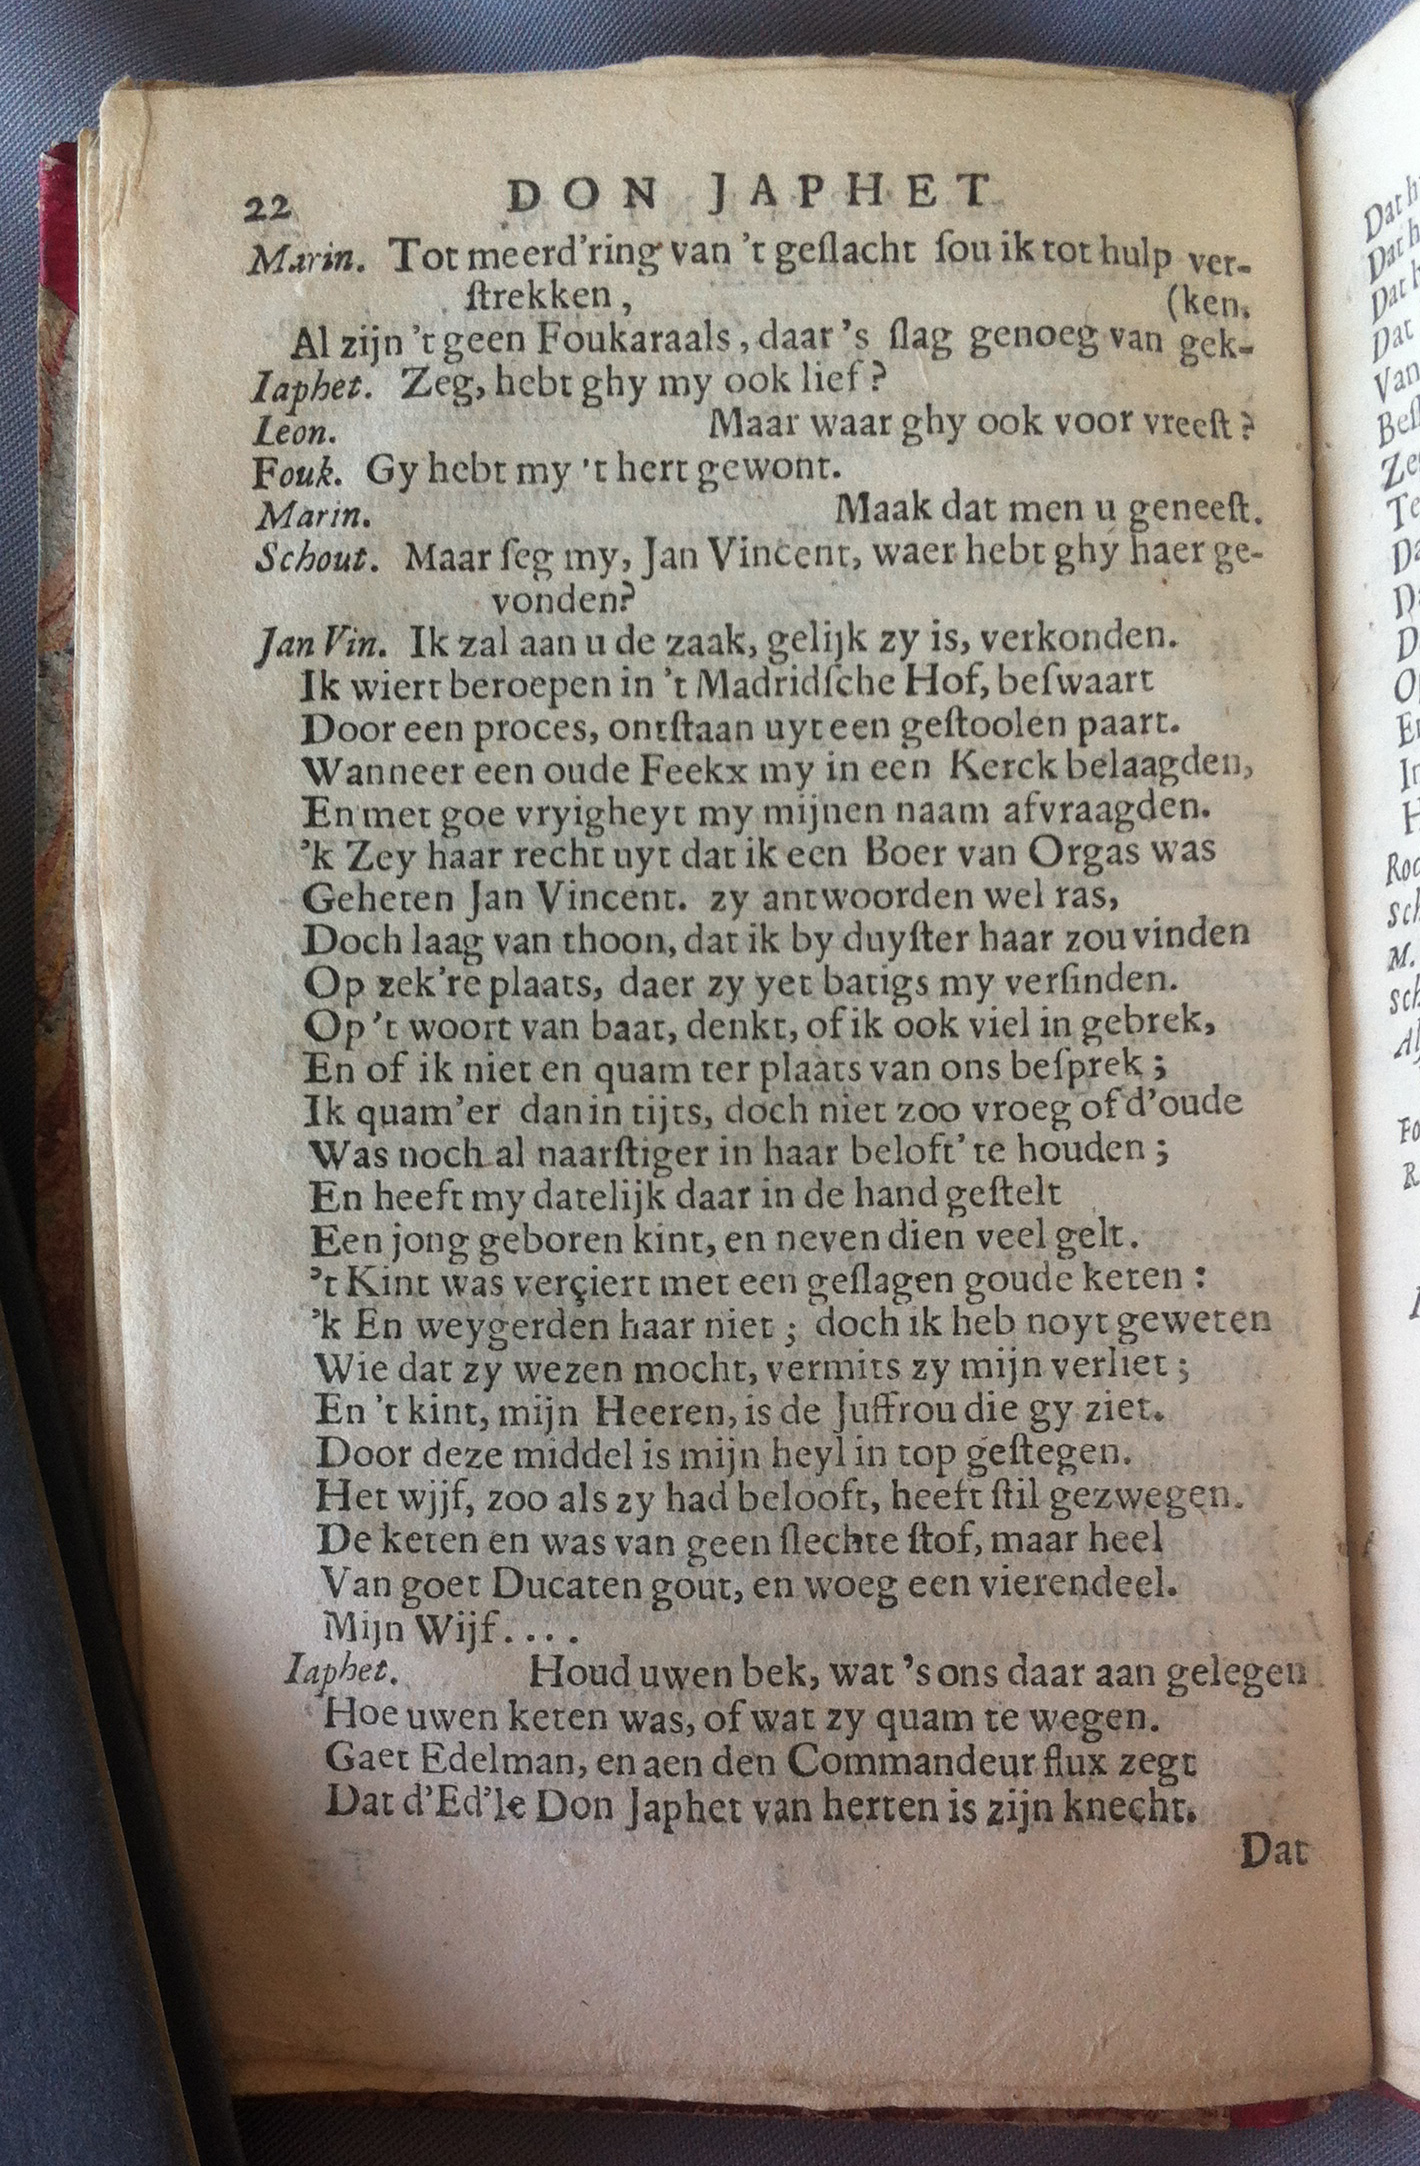 22 DON JAPHET
Marin. Tot meerd'ring van 't geſlacht ſou ik tot hulp ver-
ſtrekken, (ken.
Al zijn 't geen Foukaraals, daar 's ſlag genoeg van gek-
Iaphet. Zeg, hebt ghy my ook lief?
Leon. Maar waar ghy ook voor vreeſt?
Fouk. Gy hebt my 't hert gewont.
Marin. Maak dat men u geneeſt.
Schout. Maar ſeg my, Jan Vincent, waer hebt ghy haer ge-
vonden?
Jan Vin. Ik zal aan u de zaak, gelijk zy is, verkonden.
Ik wiert beroepen in 't Madridſche Hof, beſwaart
Door een proces, ontſtaan uyt een geſtoolen paart.
Wanneer een oude Feekx my in een Kerck belaagden,
En met goe vryigheyt my mijnen naam afvraagden.
'k Zey haar recht uyt dat ik een Boer van Orgas was
Geheten Jan Vincent. zy antwoorden wel ras,
Doch laag van thoon, dat ik by duyſter haar zou vinden
Op zek're plaats, daer zy yet batigs my verſinden.
Op 't woort van baat, denkt, of ik ook viel in gebrek,
En of ik niet en quam ter plaats van ons beſprek;
Ik quam'er dan in tijts, doch niet zoo vroeg of d'oude
Was noch al naarſtiger in haar beloft' te houden;
En heeft my datelijk daar in de hand geſtelt
Een jong geboren kint, en neven dien veel gelt.
't Kint was verçiert met een geſlagen goude keten:
'k En weygerden haar niet; doch ik heb noyt geweten
Wie dat zy wezen mocht, vermits zy mijn verliet;
En 't kint, mijn Heeren, is de Juffrou die gy ziet.
Door deze middel is mijn heyl in top geſtegen.
Het wjjf, zoo als zy had belooft, heeft ſtil gezwegen.
De keten en was van geen ſlechte ſtof, maar heel
Van goet Ducaten gout, en woeg een vierendeel.
Mijn Wijf....
Iaphet. Houd uwen bek, wat 's ons daar aan gelegen
Hoe uwen keten was, of wat zy quam te wegen.
Gaet Edelman, en aen den Commandeur flux zegt
Dat d'Ed'le Don Japhet van herten is zijn knecht.
Dat